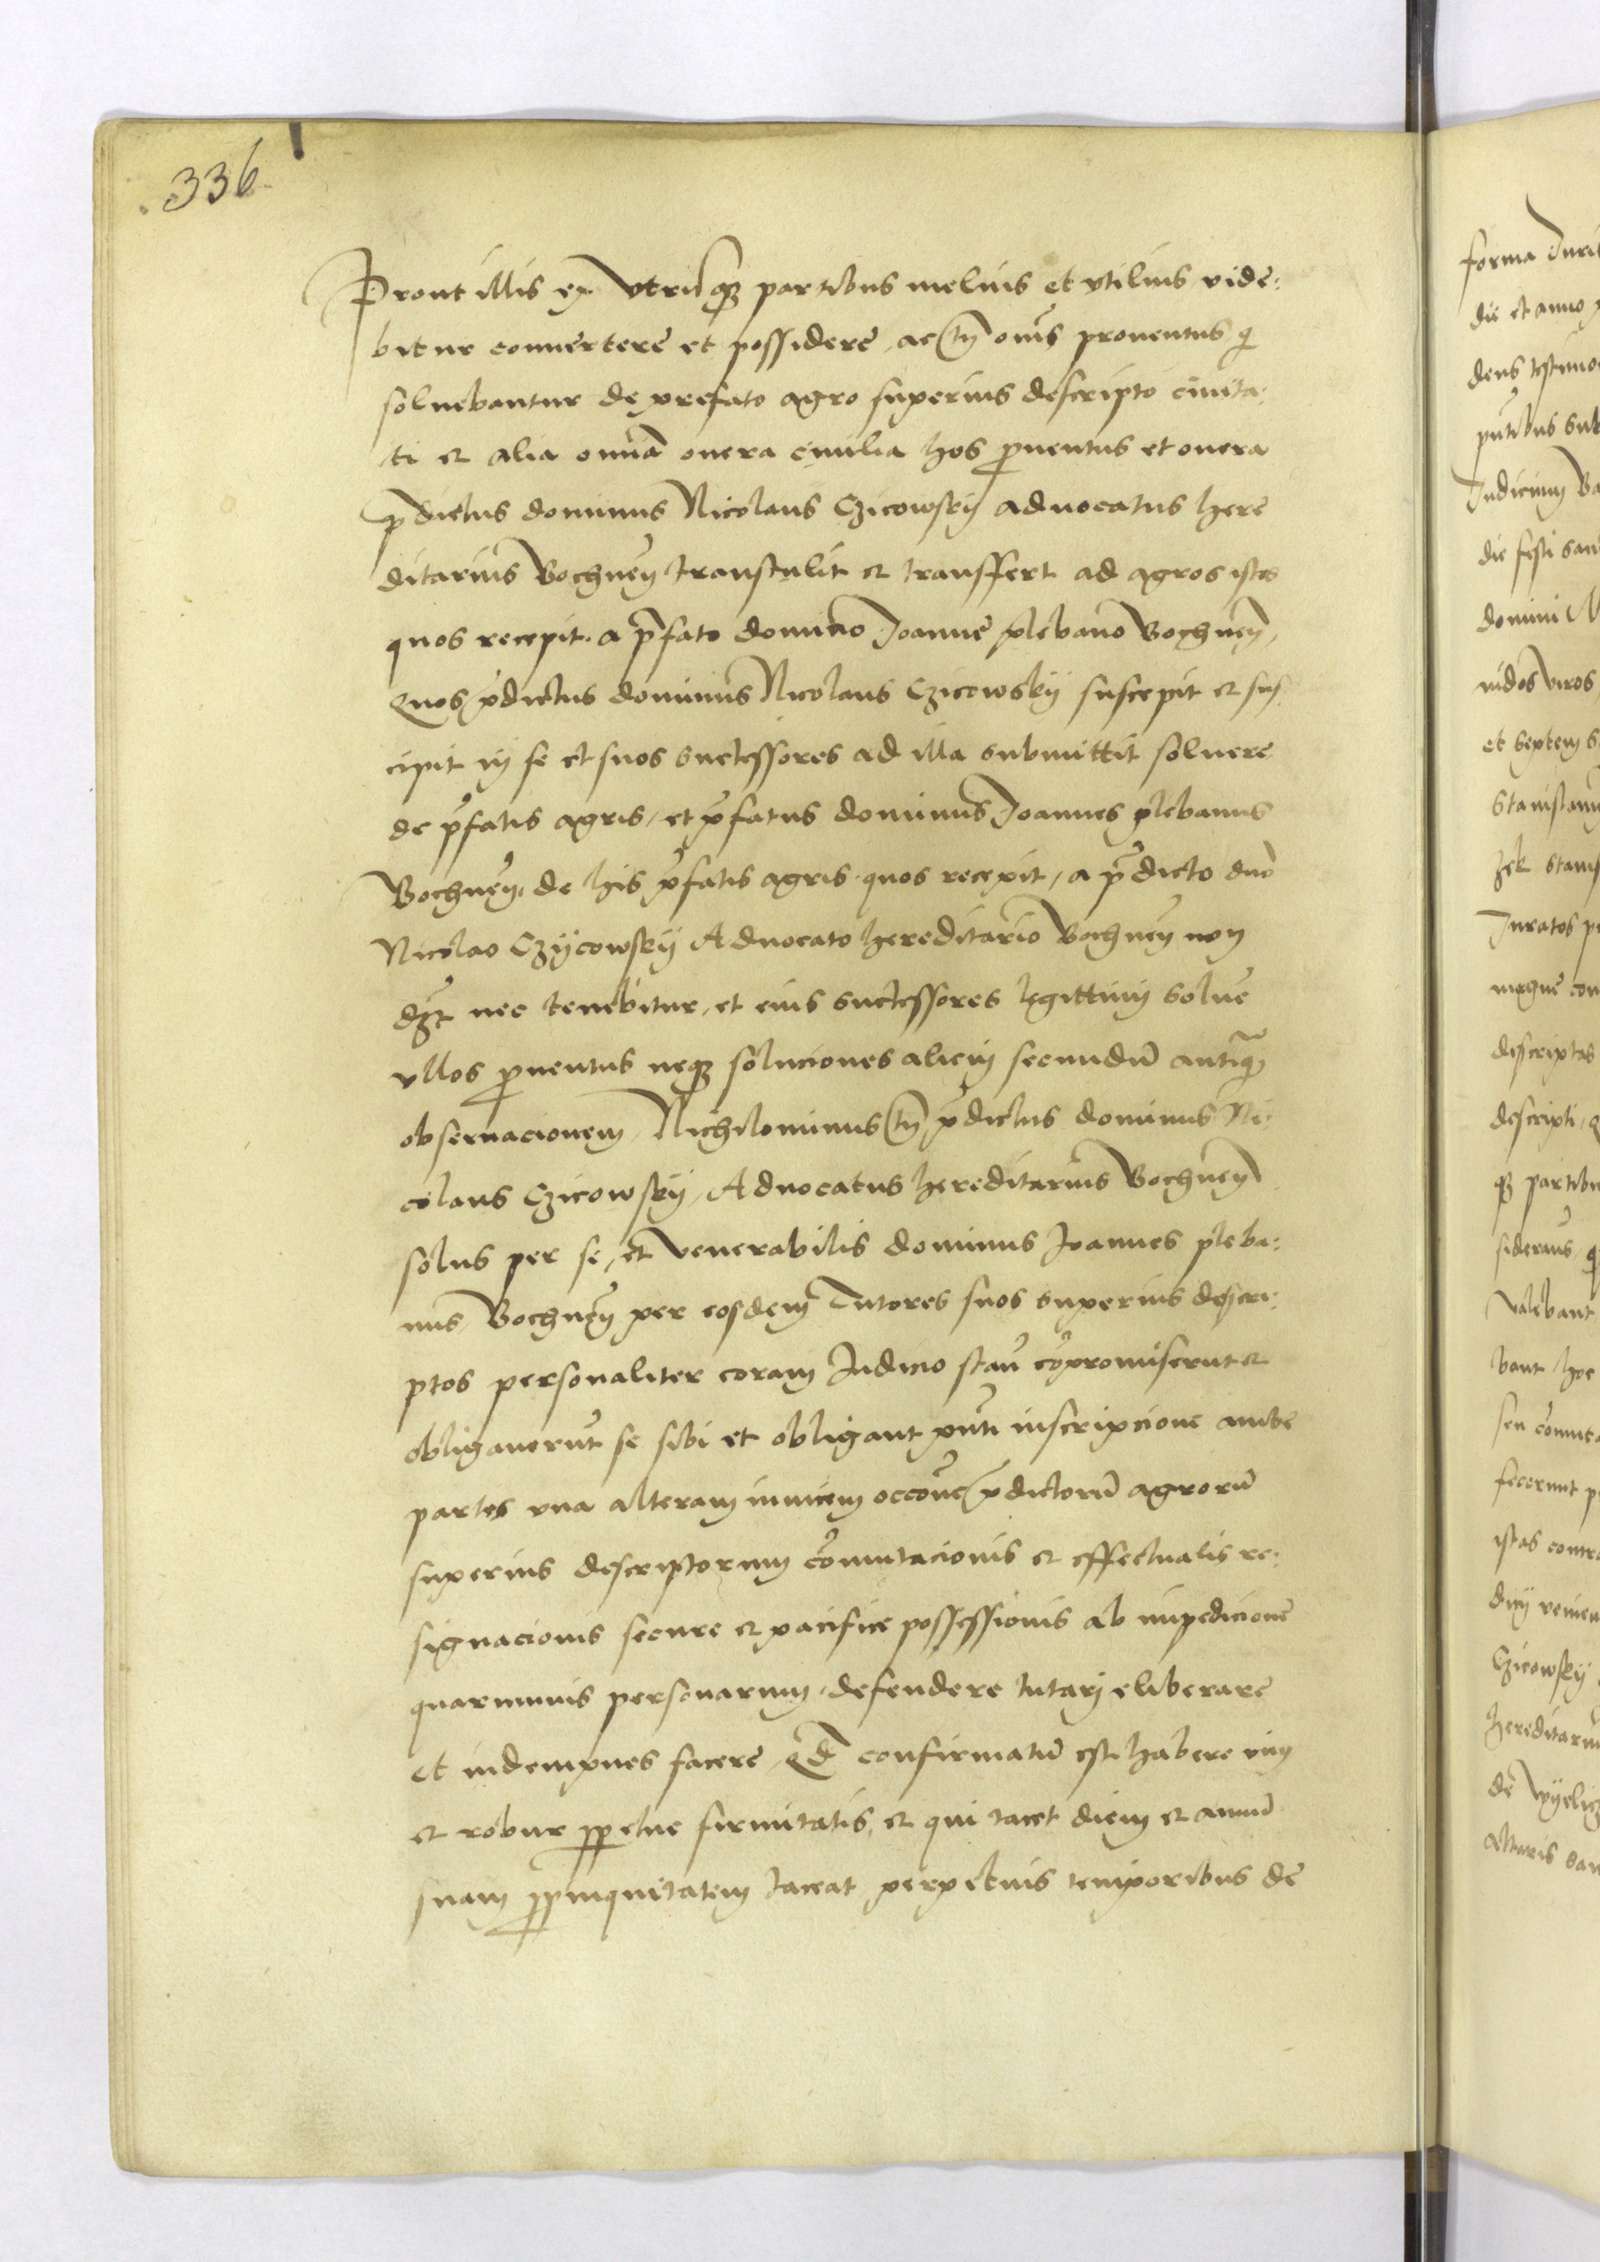 336
Prout illis ex utriusq partibus melius et utilius vide:
bitur convertere et possidere, ac tn omes proventus q
solvebantur de prefato agro superius descripto civita
ti et alia omia onera civilia hos pventus et onera
pdictus dominus Nicolaus Czicowsky advocatus here
ditarius Bochnen transtulit et transffert ad agros istos
quos recepit a pfato domino Joanne plebano Bochnen,
Quos pdictus dominus Nicolaus Czicowsky suscepit et sus
cipit in se et suos successores ad illa submittit solvere
de pfatis agris, et pfatus dominus Joannes plebanus
Bochnen, de his pfatis agris quos recepit, a pdicto dno
Nicolao Czycowsky Advocato hereditario Bochnen non
dzt nec tenebitur, et eius successores legittimi solve
ullos pventus neq soluciones alicui secundu antiqua
observacionem, Nichilominus tn pdictus dominus Ni:
colaus Czicowsky, Advocatus hereditarius Bochnen
solus per se, et venerabilis dominus Joannes pleba:
nus Bochnen per eosdem Tutores suos superius descri
ptos personaliter coram Judicio stan copromiserut et
obligaverut se sibi et obligant pnti inscripcione ambe
partes una alteram invicem occone pdictoru agroru
superius descriptorum comutacionis et effectualis re:
signacionis secure et pacifice possessionis ab impedicione
quarumvis personarum, defendere tutari eliberare
et indempnes facere, Qd confirmatu est habere vim
et robur ppetue firmitatis, et qui tacet diem et annu
suam ppinquitatem taceat perpetuis temporibus de
forma Juris
die et anno
dens testimo
pntibus sub
Judicium Ba
die festi san
domini
vidos viros
et septem
Stanislaum
Juratos
magne
descriptas
descripti,
q partibu
valebant
bant hoc
sen comuta
fecerunt p
istas contra
Czicowsky
hereditariu
altaris san